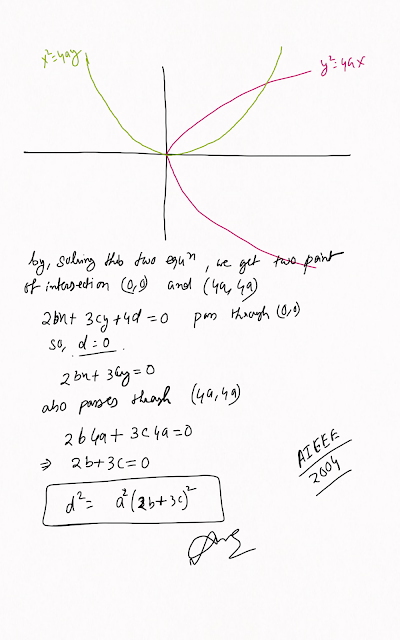 x²=4ay
y²=4ax
by, solving this two equⁿ, we get two point
of intersection (0,0) and (4a,4a)
2bx+ 3cy+4d=0 pass through (0,0)
so, d=0.
2bx+3cy=0
also passes through (4a,4a)
2b4a+3c4a=0
⇒ 2b+3c=0
d²= a²(2b+3c)²
AIEEE
2004
Ans